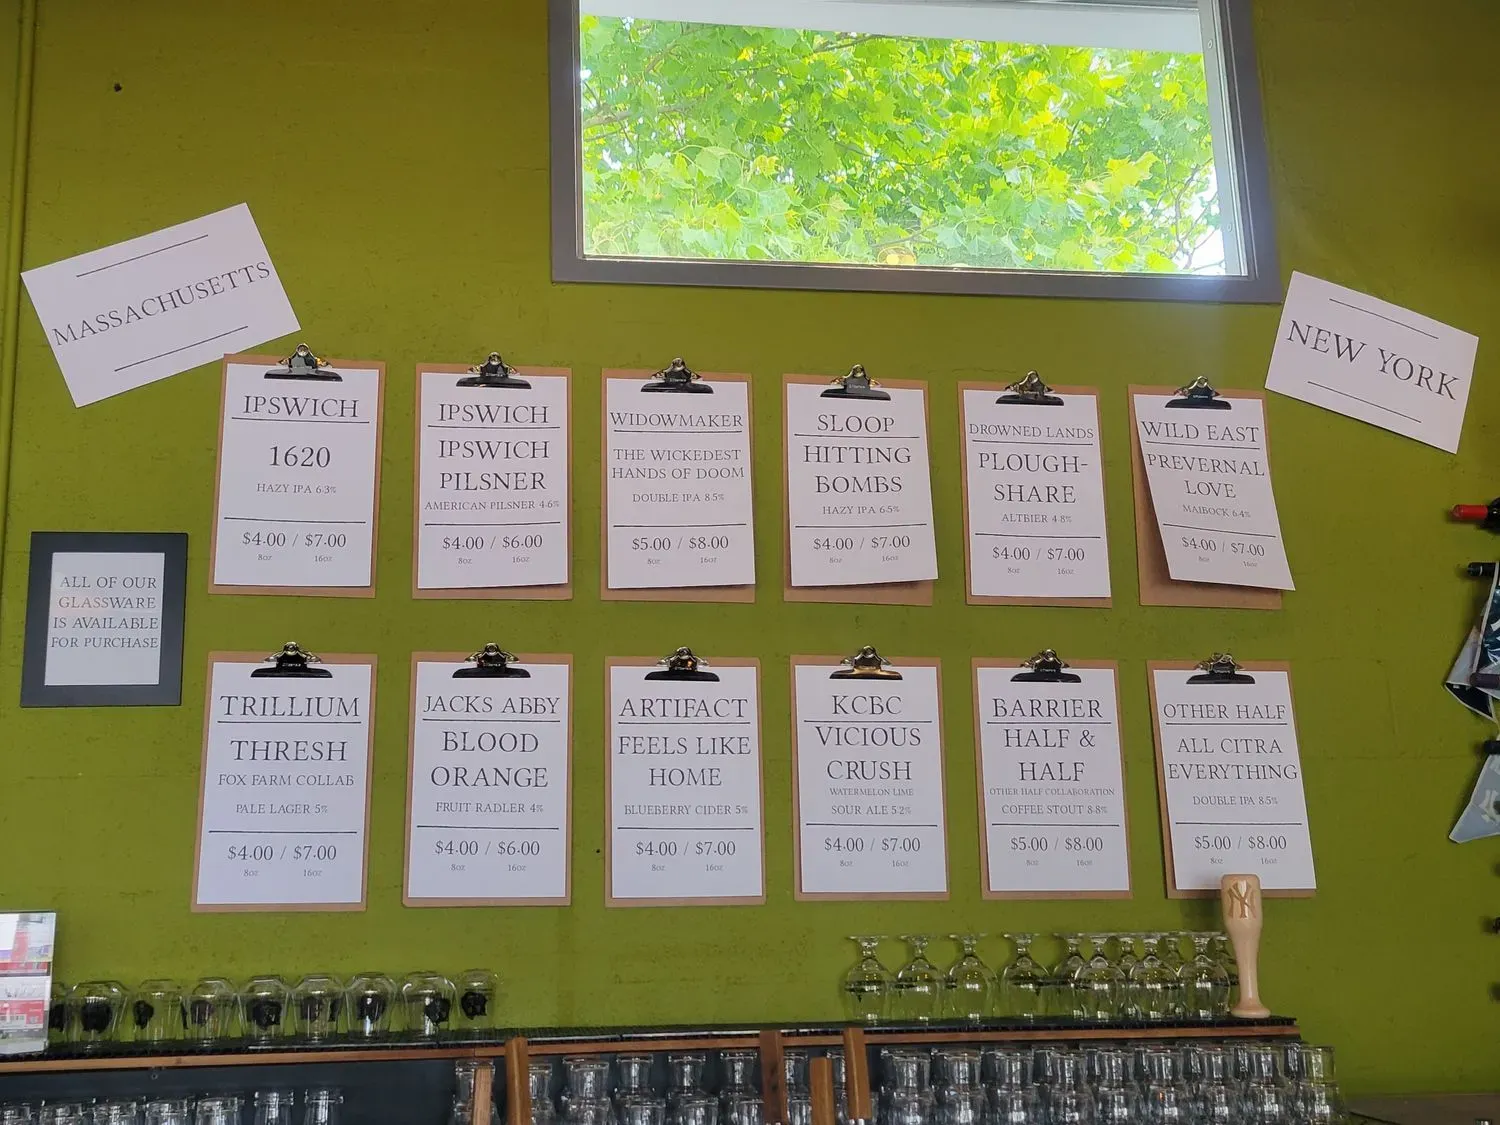 MASSACHUSETTS
NEW YORK
IPSWICH
1620
HAZY IPA 6.3%
$4.00 / $7.00
8oz 16oz
IPSWICH
IPSWICH
PILSNER
AMERICAN PILSNER 4.6%
$4.00 / $6.00
8oz 16oz
WIDOWMAKER
THE WICKEDEST
HANDS OF DOOM
DOUBLE IPA 8.5%
$5.00 / $8.00
8oz 16oz
SLOOP
HITTING
BOMBS
HAZY IPA 6.5%
$4.00 / $7.00
8oz 16oz
DROWNED LANDS
PLOUGH-
SHARE
ALTBIER 4.8%
$4.00 / $7.00
8oz 16oz
WILD EAST
PREVERNAL
LOVE
MAIBOCK 6.4%
$4.00 / $7.00
8oz 16oz
ALL OF OUR
GLASSWARE
IS AVAILABLE
FOR PURCHASE
TRILLIUM
THRESH
FOX FARM COLLAB
PALE LAGER 5%
$4.00 / $7.00
8oz 16oz
JACKS ABBY
BLOOD
ORANGE
FRUIT RADLER 4%
$4.00 / $6.00
8oz 16oz
ARTIFACT
FEELS LIKE
HOME
BLUEBERRY CIDER 5%
$4.00 / $7.00
8oz 16oz
KCBC
VICIOUS
CRUSH
WATERMELON LIME
SOUR ALE 5.2%
$4.00 / $7.00
8oz 16oz
BARRIER
HALF &
HALF
OTHER HALF COLLABORATION
COFFEE STOUT 8.8%
$5.00 / $8.00
8oz 16oz
OTHER HALF
ALL CITRA
EVERYTHING
DOUBLE IPA 8.5%
$5.00 / $8.00
8oz 16oz
NY